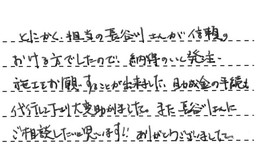 とにかく、担当の長谷川さんが信頼の
おける方でしたので、納得のいく発注・
施工をお願いすることが出来ました。助成金の手続も
代行して下さり大変助かりました。また長谷川さんに
ご相談したいと思います!! ありがとうございました。